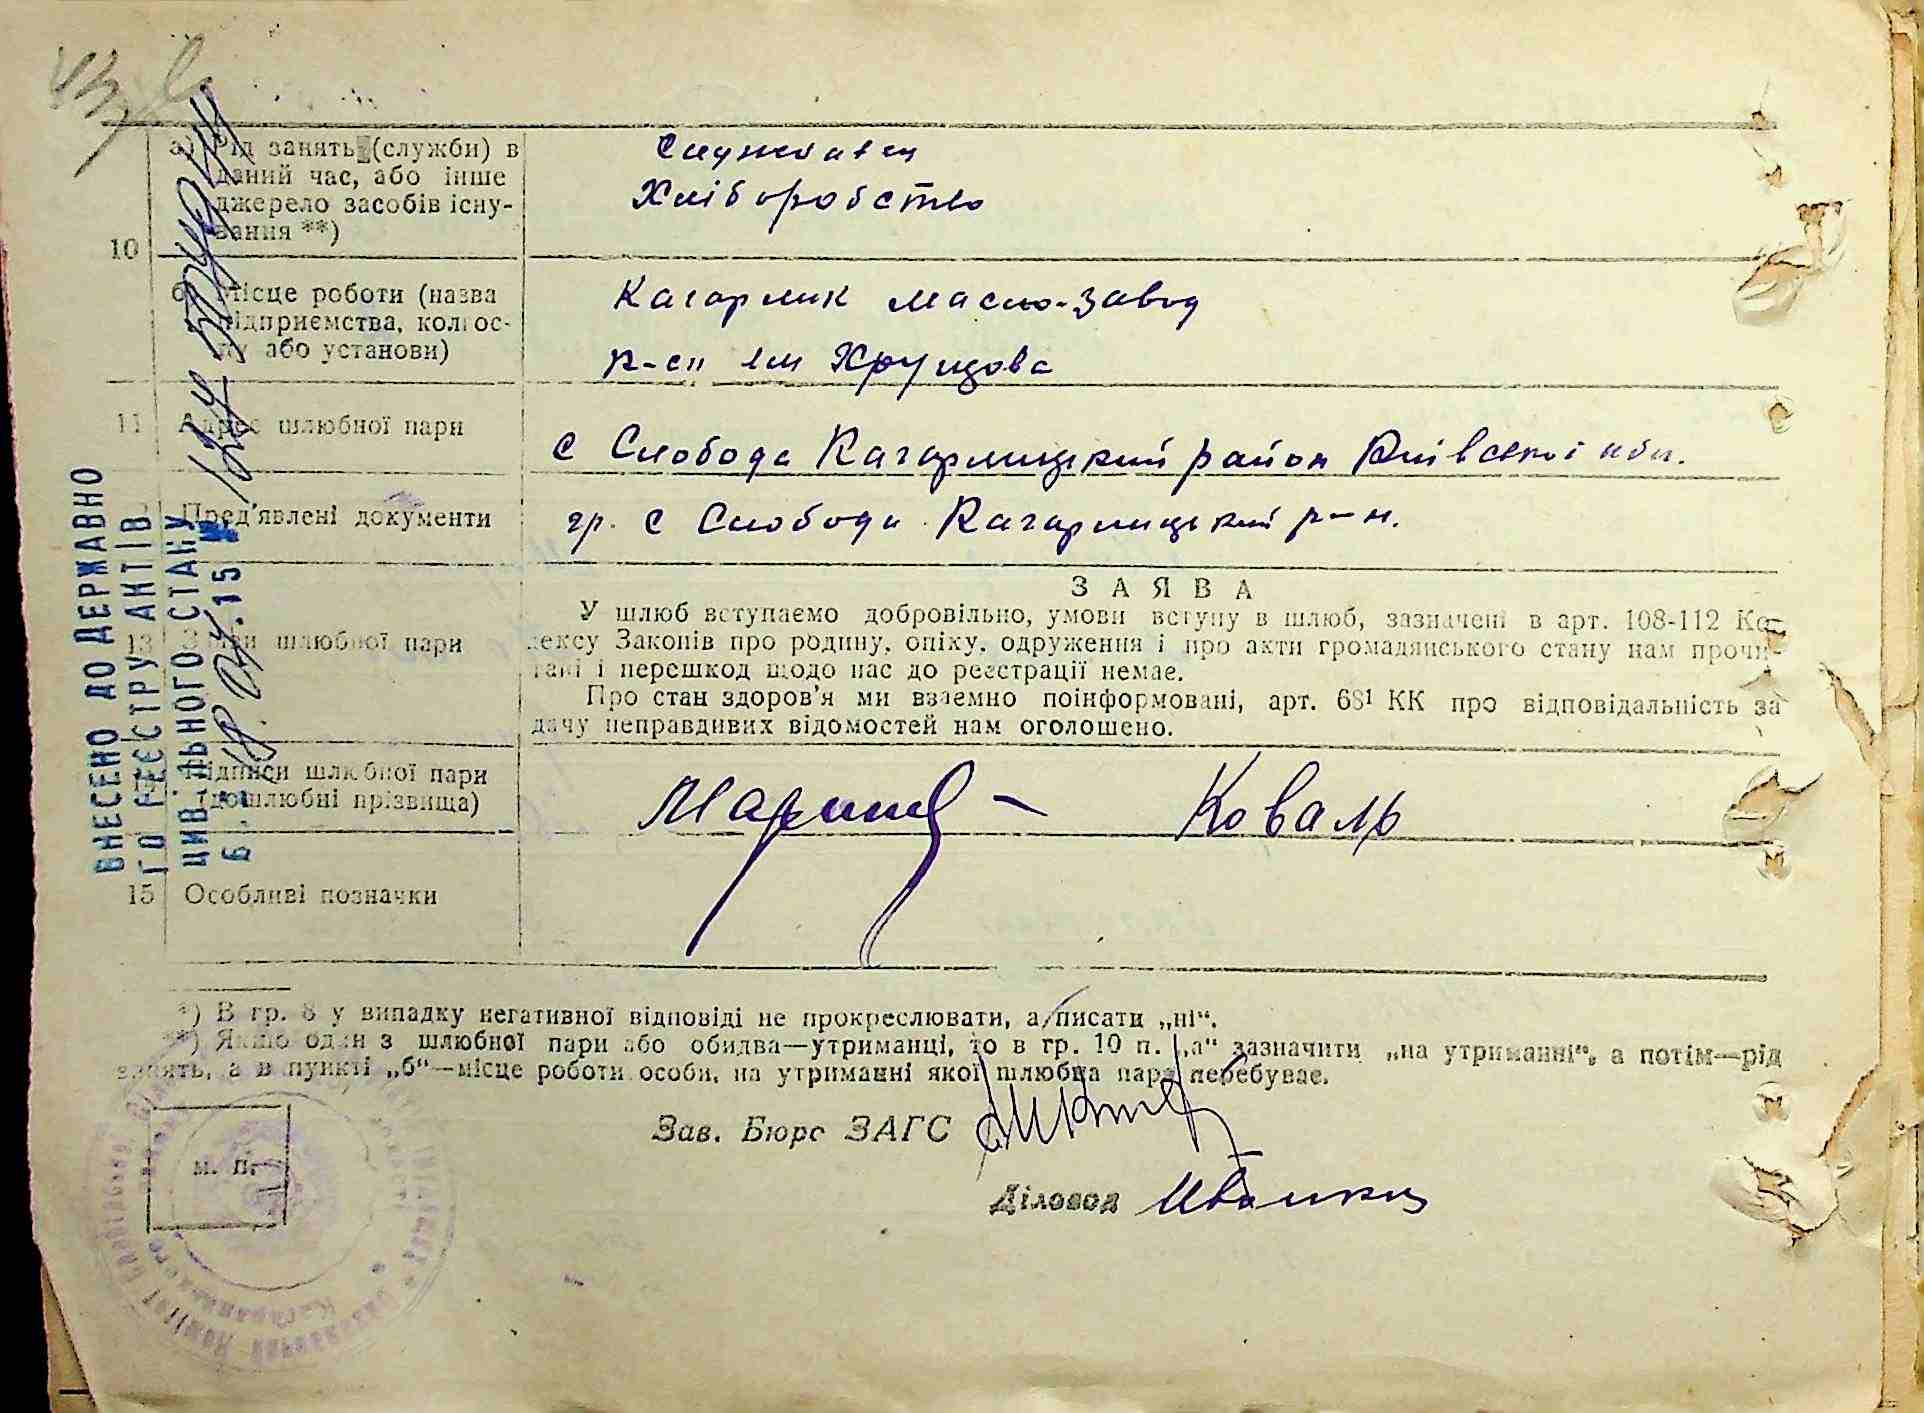 10
а) Рід занять (служби) в
даний час, або інше
джерело засобів існу-
вання **)
Службовец
Хліборобство
б) Місце роботи (назва
підприємства, колгос-
пу або установи)
Кагарлик масло-завод
к-сп ім Хрущова
11 Адрес шлюбної пари
с Слобода Кагарлицький район Київської обл.
Пред'явлені документи
гр. с Слобода Кагарлицький р-н.
13 шлюбної пари
ЗАЯВА
У шлюб вступаємо добровільно, умови вступу в шлюб, зазначені в арт. 108-112 Ко-
дексу Законів про родину, опіку, одруження і про акти громадянського стану нам прочи-
тані і перешкод щодо нас до реєстрації немає.
Про стан здоров'я ми взаємно поінформовані, арт. 68¹ КК про відповідальність за
дачу неправдивих відомостей нам оголошено.
Підписи шлюбної пари
(дошлюбні прізвища)
Коваль
15 Особливі позначки
*) В гр. 8 у випадку негативної відповіді не прокреслювати, а писати „ні“.
**) Якщо один з шлюбної пари або обидва—утриманці, то в гр. 10 п. „а“ зазначити „на утриманні“, а потім—рід
занять, а в пункті „б“—місце роботи особи, на утриманні якої шлюбна пара перебуває.
Зав. Бюро ЗАГС
м. п.
Діловод
ВНЕСЕНО ДО ДЕРЖАВНО
ГО РЕЄСТРУ АКТІВ
ЦИВІЛЬНОГО СТАНУ